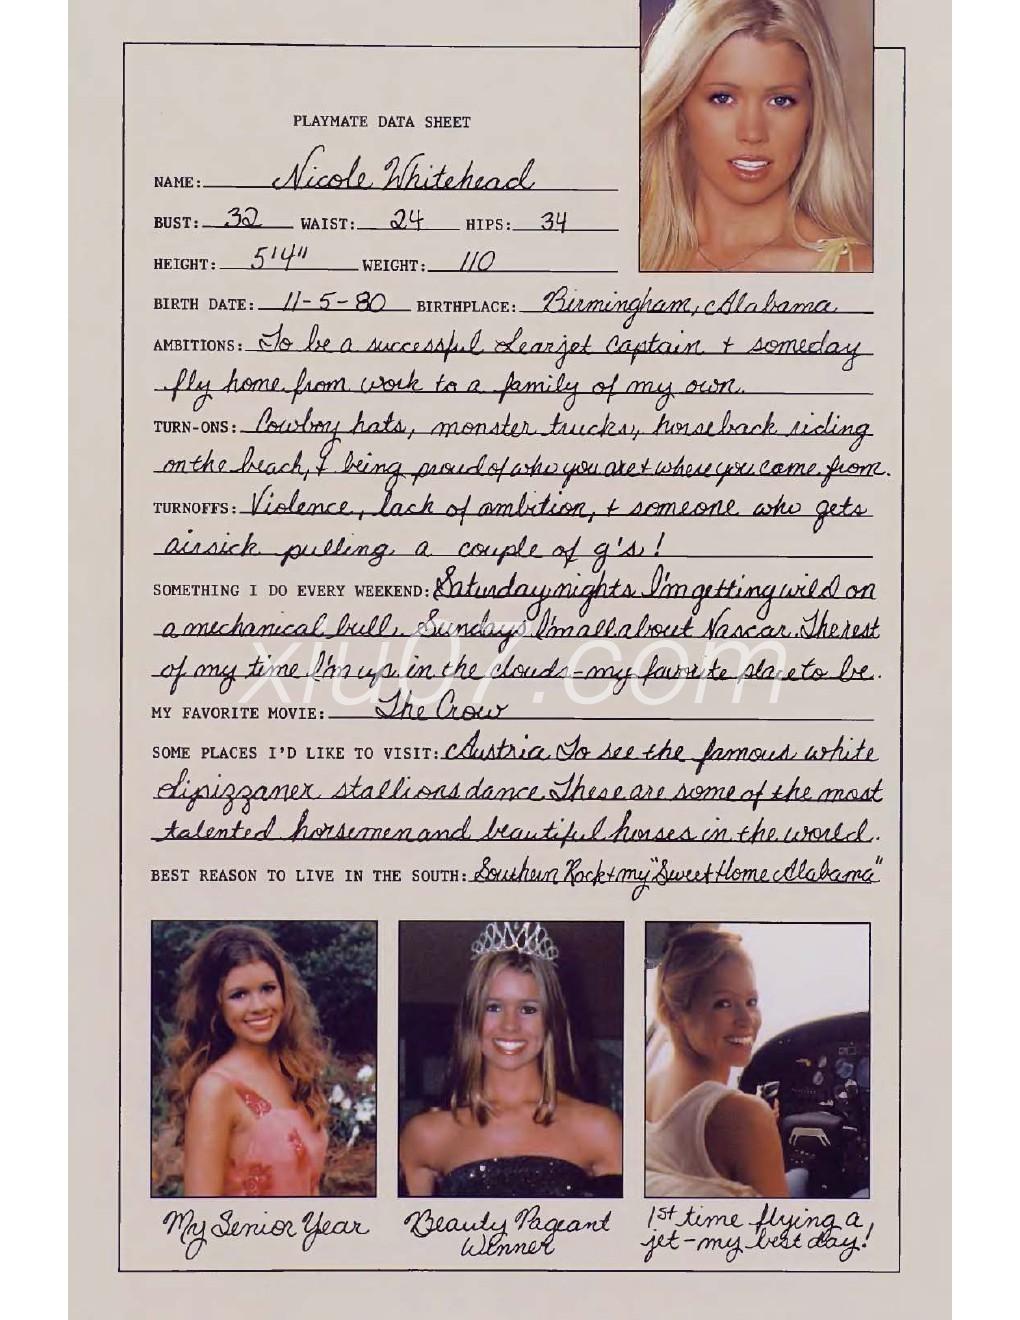 PLAYMATE DATA SHEET
NAME: Nicole Whitehead
BUST: 32 WAIST: 24 HIPS: 34
HEIGHT: 5'4" WEIGHT: 110
BIRTH DATE: 11-5-80 BIRTHPLACE: Birmingham, Alabama
AMBITIONS: To be a successful Learjet Captain + someday
fly home from work to a family of my own.
TURN-ONS: Cowboy hats, monster trucks, horseback riding
on the beach, & being proud of who you are + where you come from.
TURNOFFS: Violence, lack of ambition, + someone who gets
airsick pulling a couple of g's!
SOMETHING I DO EVERY WEEKEND: Saturday nights I'm getting wild on
a mechanical bull. Sundays I'm all about Nascar. The rest
of my time I'm up in the clouds-my favorite place to be.
xiu07.com
MY FAVORITE MOVIE: The Crow
SOME PLACES I'D LIKE TO VISIT: Austria To see the famous white
Lipizzaner stallions dance. These are some of the most
talented horsemen and beautiful horses in the world.
BEST REASON TO LIVE IN THE SOUTH: Southern Rock + my "Sweet Home Alabama"
My Senior Year
Beauty Pageant
Winner
1st time flying a
jet-my best day!